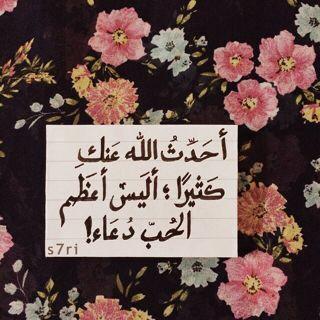 أحَدِّثُ الله عَنك
كَثيرًا ؛ أليَسَ أعظَم
الحُبّ دُعَاء!
s7ri